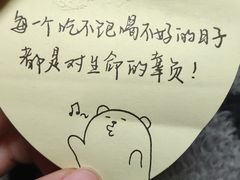 每一个吃不饱喝不好的日子
都是对生命的辜负！